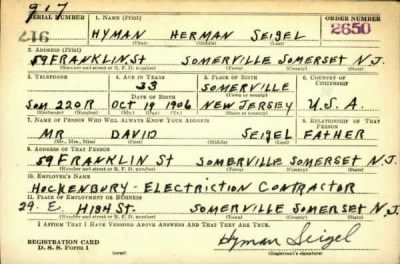 917
SERIAL NUMBER 1. NAME (Print) ORDER NUMBER
916 HYMAN HERMAN SEIGEL 2650
(First) (Middle) (Last)
2. ADDRESS (Print)
59 FRANKLIN St SOMERVILLE SOMERSET N.J.
(Number and street or R. F. D. number) (Town) (County) (State)
3. TELEPHONE 4. AGE IN YEARS 5. PLACE OF BIRTH 6. COUNTRY OF CITIZENSHIP
33 SOMERVILLE
DATE OF BIRTH (Town or county)
SOM 220R OCT 19 1906 NEW JERSEY U.S.A.
(Mo.) (Day) (Yr.) (State or country)
7. NAME OF PERSON WHO WILL ALWAYS KNOW YOUR ADDRESS 8. RELATIONSHIP OF THAT PERSON
MR DAVID SEIGEL FATHER
(Mr., Mrs., Miss) (First) (Middle) (Last)
9. ADDRESS OF THAT PERSON
59 FRANKLIN St SOMERVILLE SOMERSET N.J.
(Number and street or R. F. D. number) (Town) (County) (State)
10. EMPLOYER'S NAME
HOCKENBURY - ELECTRICTION CONTRACTOR
11. PLACE OF EMPLOYMENT OR BUSINESS
29. E. HIGH ST. SOMERVILLE SOMERSET N.J.
(Number and street or R. F. D. number) (Town) (County) (State)
I AFFIRM THAT I HAVE VERIFIED ABOVE ANSWERS AND THAT THEY ARE TRUE.
REGISTRATION CARD Hyman Seigel
D. S. S. Form 1 (over) (Registrant's signature)